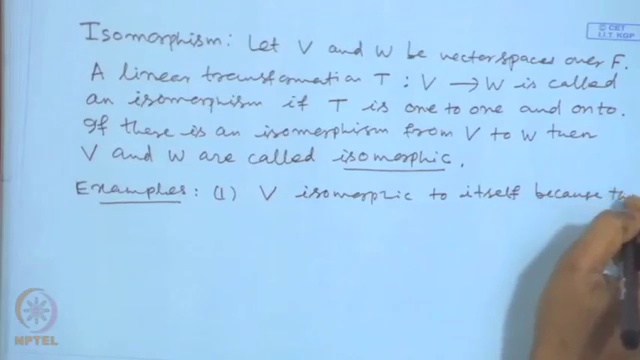 © CET
I.I.T. KGP
Isomorphism: Let V and W be vector spaces over F.
A linear transformation T : V → W is called
an isomorphism if T is one to one and onto.
If there is an isomorphism from V to W then
V and W are called isomorphic.
Examples: (1) V isomorphic to itself because
NPTEL